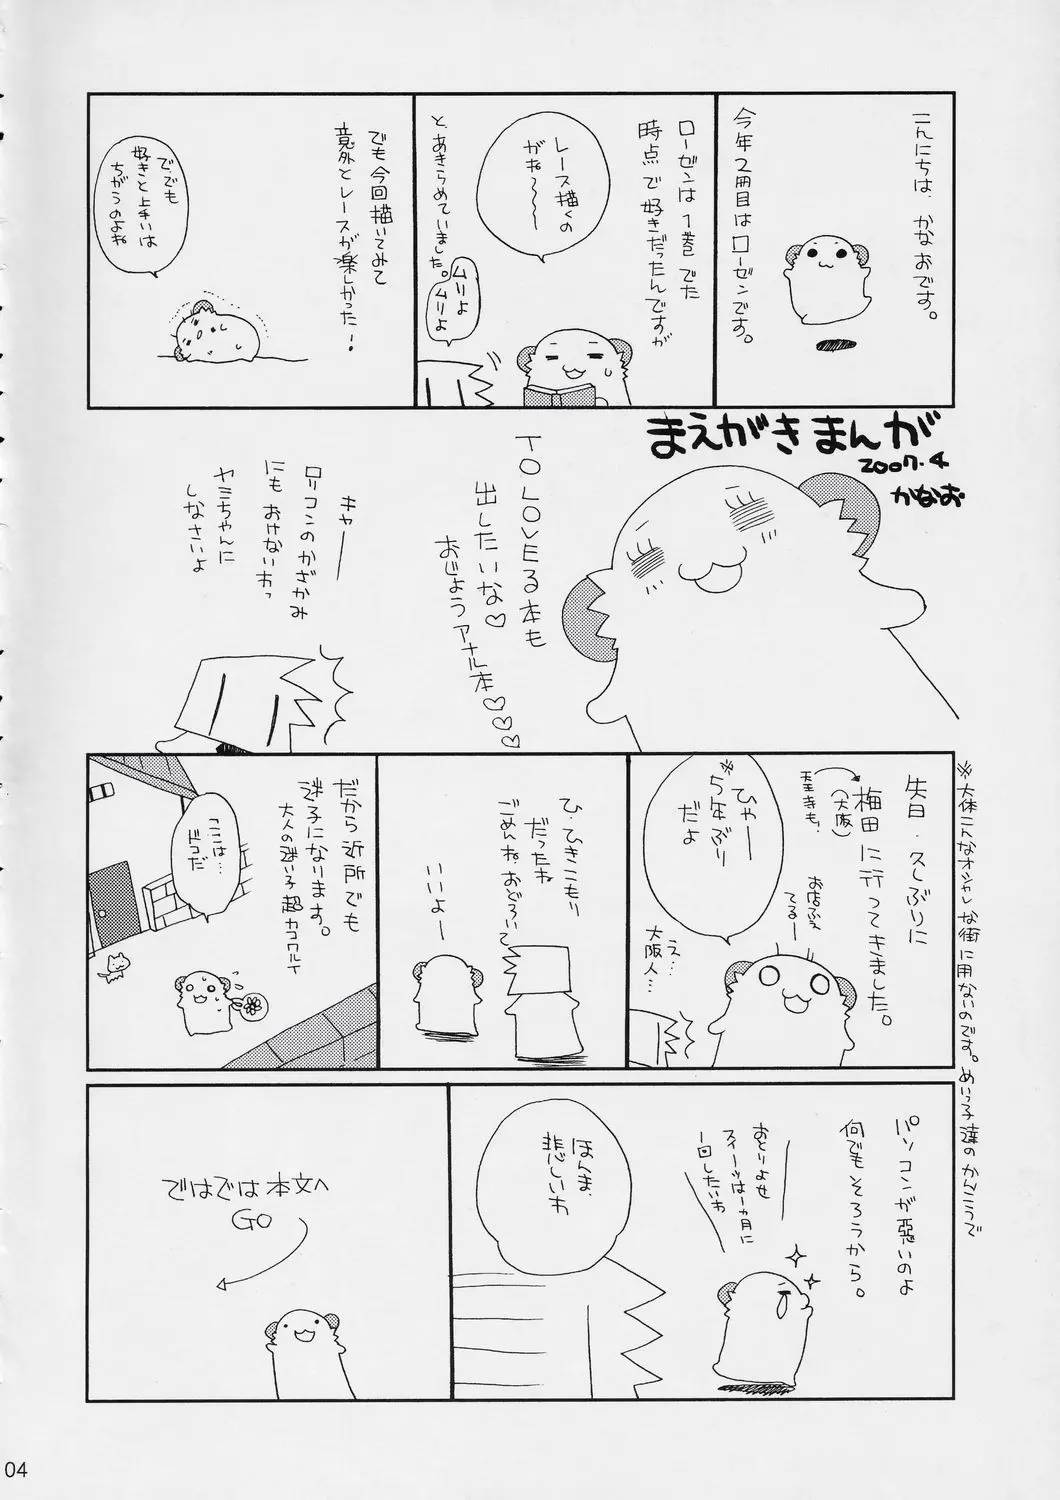 こんにちは、かなおです。
今年2冊目はローゼンです。
ローゼンは1巻でた
時点で好きだったんですが
レース描くの
がね〜〜〜
と、あきらめていました。
ムリよ
ムリよ
でも今回描いてみて
意外とレースが楽しかった!
で、でも
好きと上手いは
ちがうのよね
まえがきまんが
2007.4
かなお
TO LOVEる本も
出したいな♡
おじょうアナル本♡♡♡
キャーー
ロリコンのかざかみ
にもおけないわっ
ヤミちゃんに
しなさいよ
※大体こんなオシャレな街に用ないのです。めいっ子達のかんこうで
先日、久しぶりに
梅田に行ってきました。
(大阪)
天王寺も、
お店ふえ
てるー
ひゃーー
※5年ぶり
だよ
え…
大阪人…
ひ、ひきこもり
だったね
ごめんねおどろいて
いいよー
だから近所でも
迷子になります。
大人の迷い子超カコワルイ
ここは…
ドコだ
パソコンが悪いのよ
何でもそろうから。
おとりよせ
スイーツは1ヵ月に
一回したいわ
ほんま、
悲しいわ
ではでは本文へ
GO
04